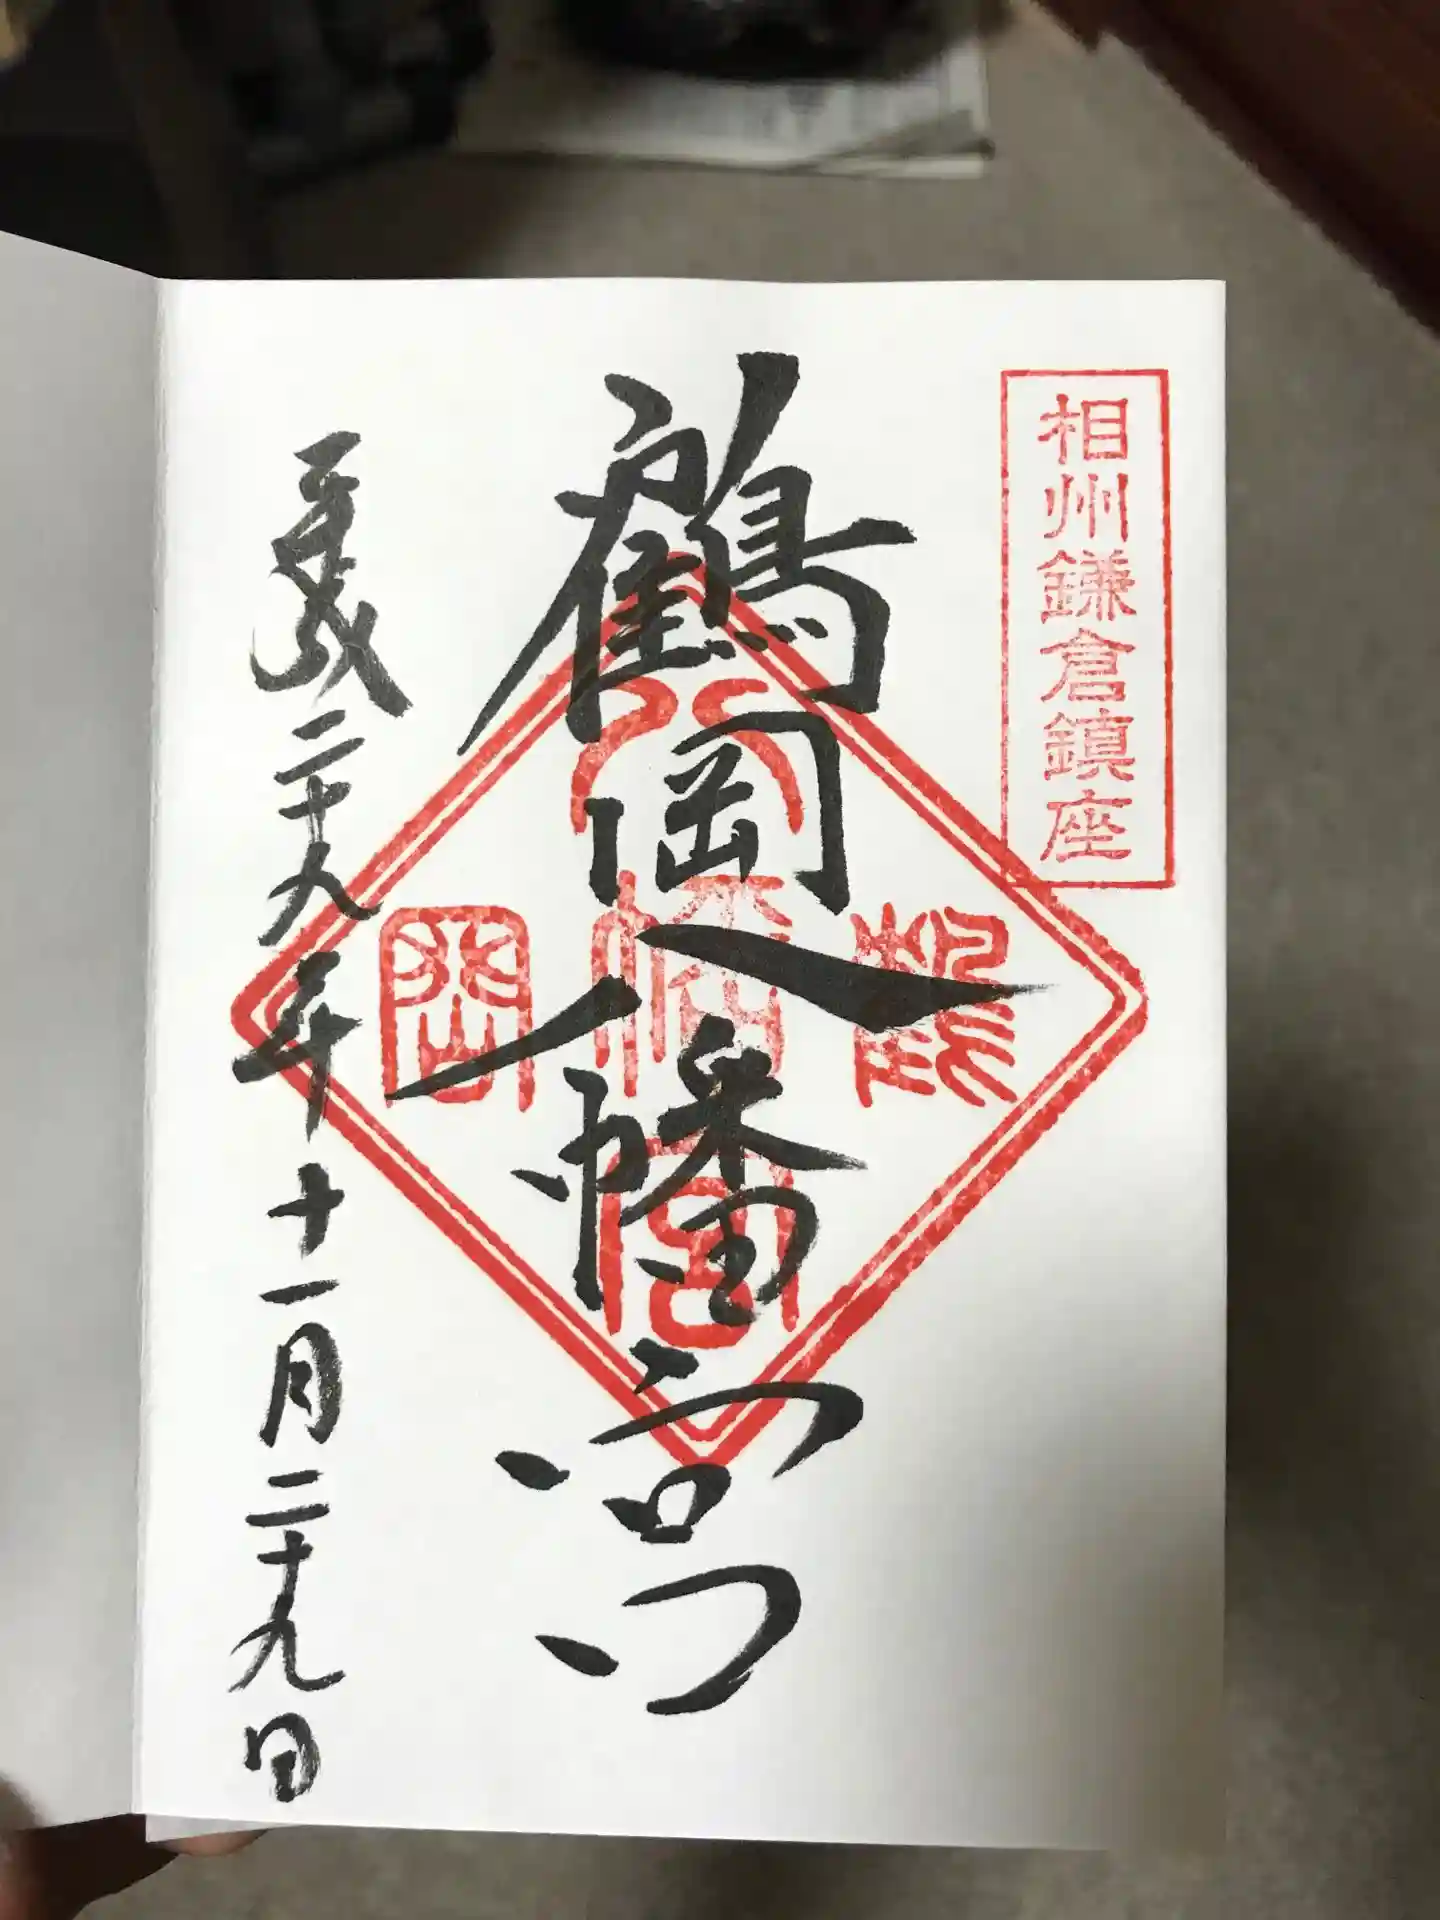 相州鎌倉鎮座
鶴岡八幡宮
鶴岡八幡宮
平成二十九年十一月二十九日